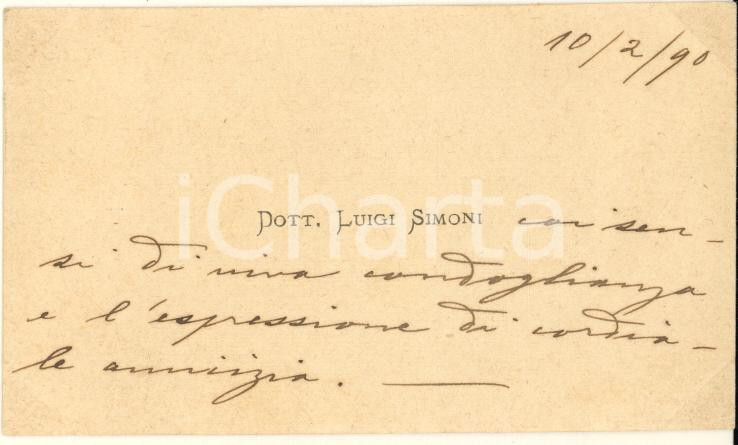 10/2/90
iCharta
DOTT. LUIGI SIMONI coi sen-
si di viva condoglianza
e l'espressione di cordia-
le amicizia.